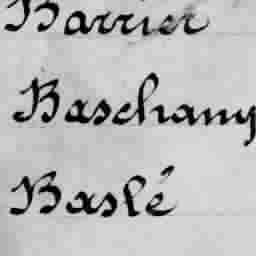 Barrier
Baschamy
Baslé